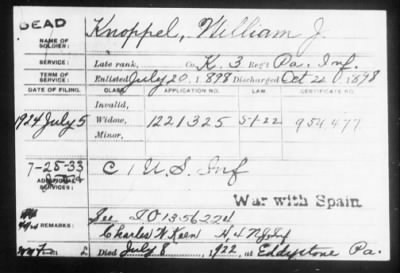 DEAD
NAME OF SOLDIER: Knoppel, William J.
SERVICE: Late rank, Co. K. 3 Reg't Pa. Inf.
TERM OF SERVICE: Enlisted July 20 1898 Discharged Oct 22 1898
DATE OF FILING. CLASS. APPLICATION NO. LAW. CERTIFICATE NO.
Invalid,
1924 July 5 Widow, 1221325 954477
Minor,
7-25-33 C 1 U.S. Inf
ADDITIONAL SERVICES:
War with Spain
REMARKS: See
Charles W. Keen
Died July 8, 1922, at Eddystone Pa.